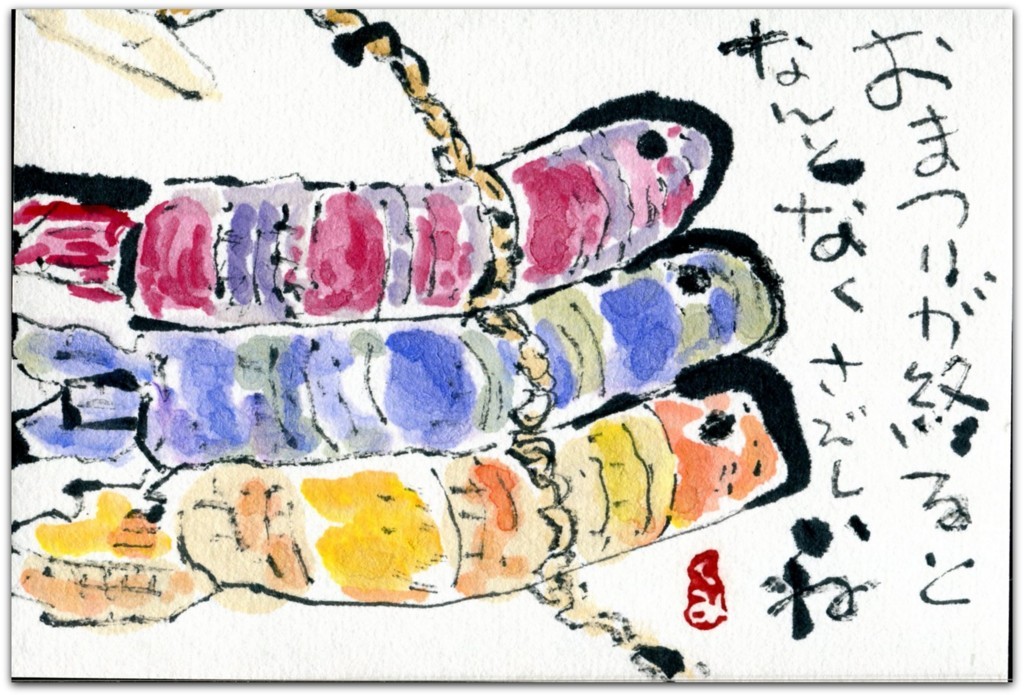 おまつりが終ると
なんとなくさびしいね